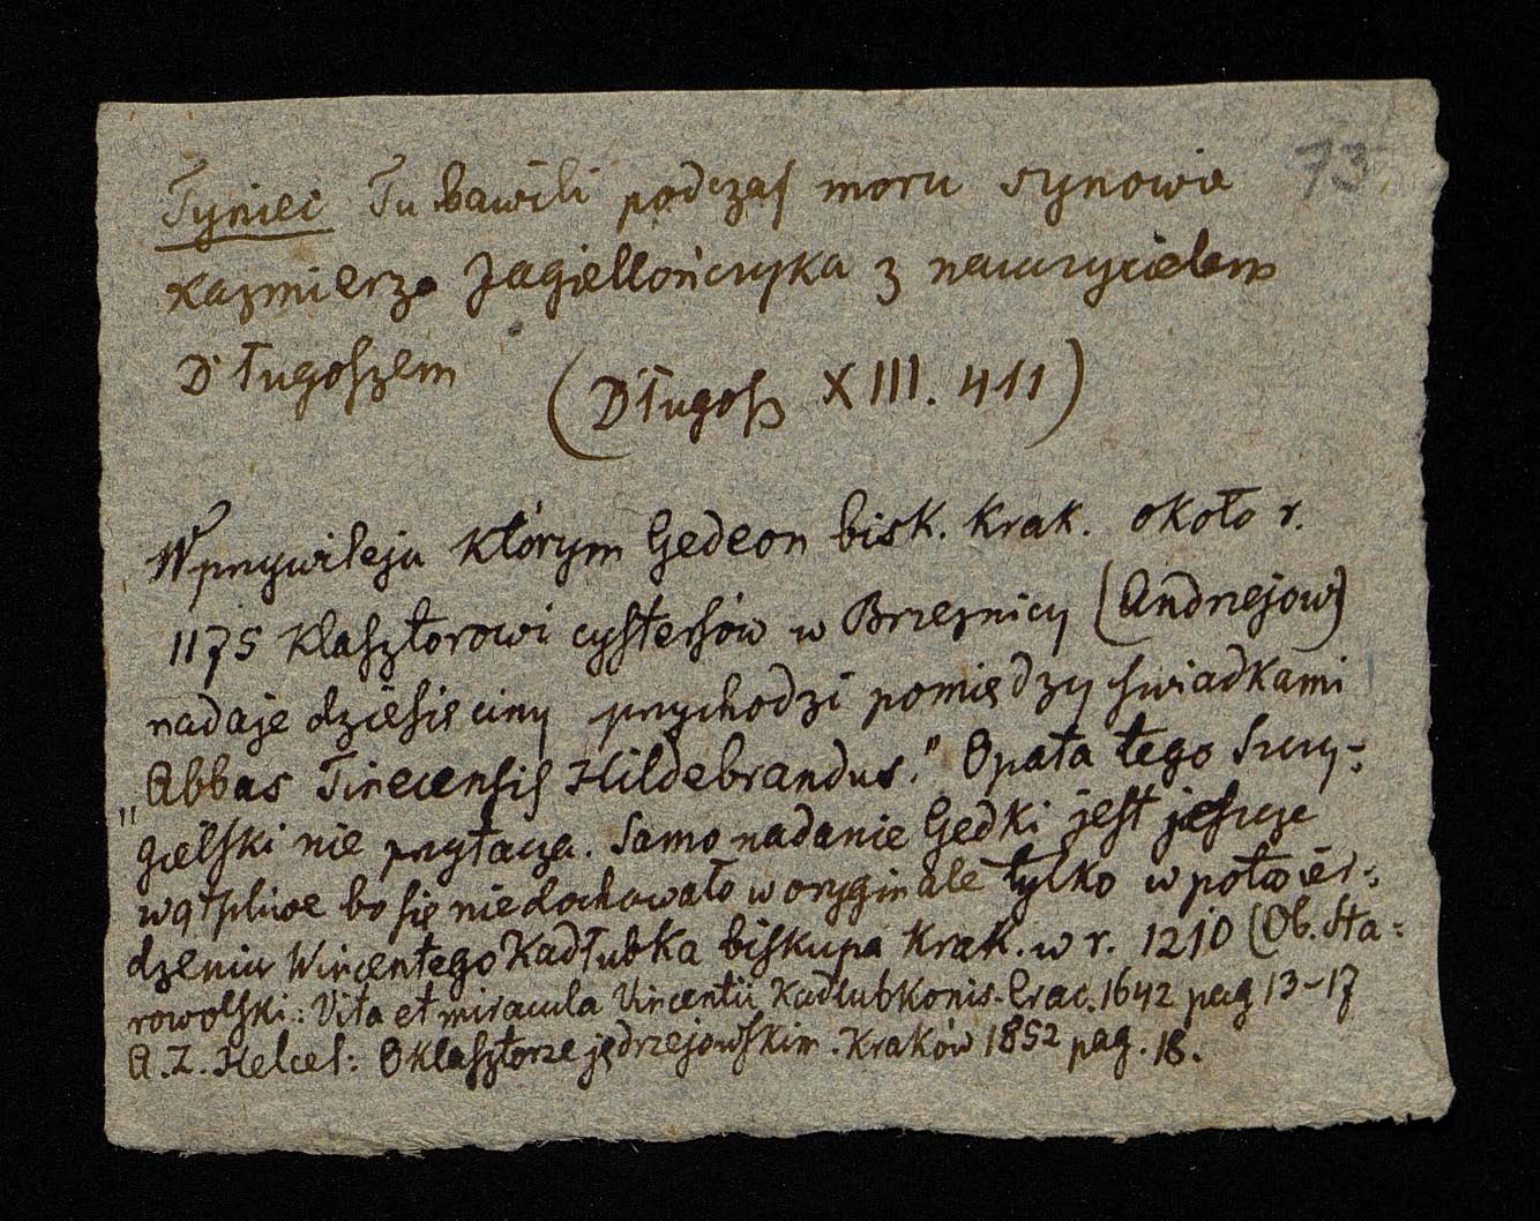 73
Tyniec Tu bawili podczas moru synowie
Kazmierza Jagiellończyka z nauczycielem
Długoszem (Długosz XIII. 411)
W przywileju którym Gedeon bisk. Krak. około r.
1175 klasztorowi cystersów w Brzeznicy (Andrzejow)
nadaje dziesięciny przychodzi pomiędzy swiadkami
„Abbas Tinecensis Hildebrandus." Opata tego Szczy-
gielski nie przytacza. Samo nadanie Gedki jest jeszcze
wątpliwe bo się niedochowało w oryginale tylko w potwier-
dzeniu Wincentego Kadłubka biskupa Krak. w r. 1210 (Ob. Sta=
rowolski: Vita et miracula Vincentii Kadlubkonis. Crac. 1642 pag 13-17
A. Z. Helcel: O klasztorze jędrzejowskim. Kraków 1852 pag. 18.